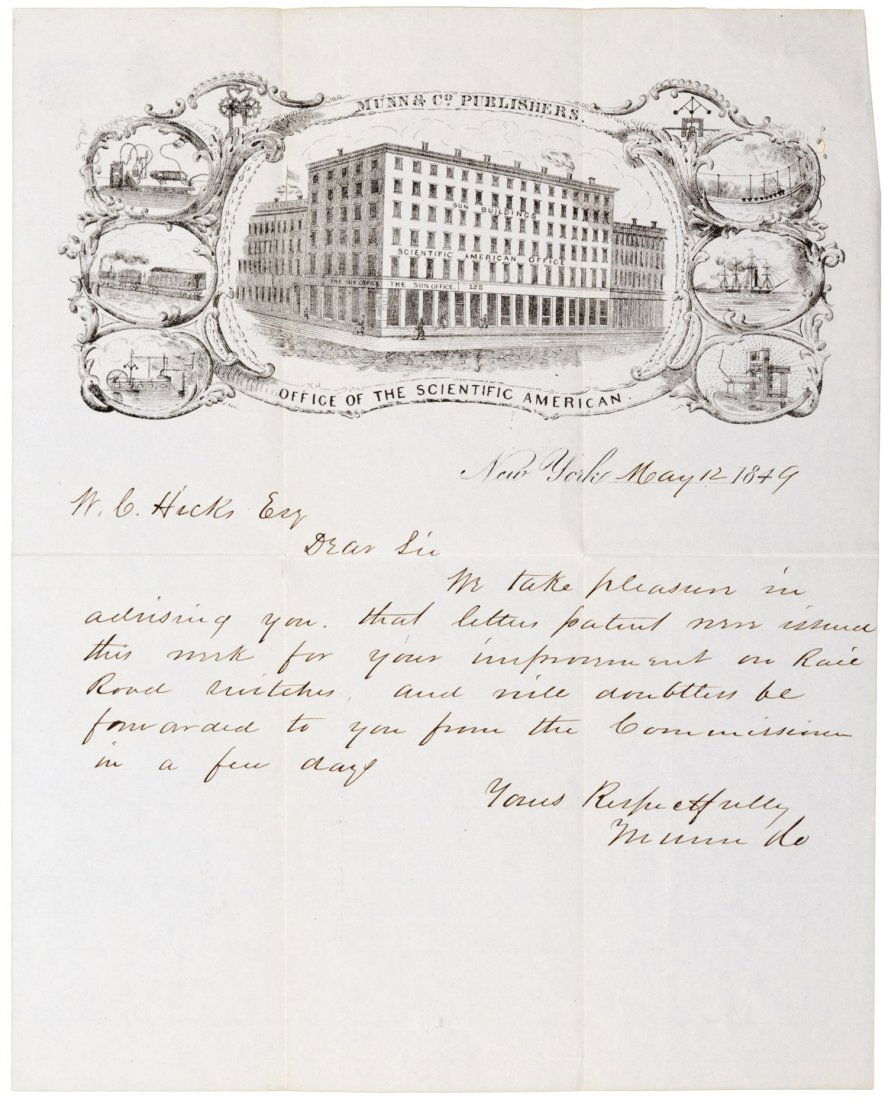 MUNN & Co. PUBLISHERS.
SUN BUILDINGS
SCIENTIFIC AMERICAN OFFICE
THE SUN OFFICE THE SUN OFFICE 128
OFFICE OF THE SCIENTIFIC AMERICAN.
New York May 12 1849
W. C. Hicks Esq
Dear Sir
We take pleasure in
advising you. that letters patent were issued
this week for your improvement on Rail
Road switches, and will doubtless be
forwarded to you from the Commissioner
in a few days
Yours Respectfully
Munn & Co